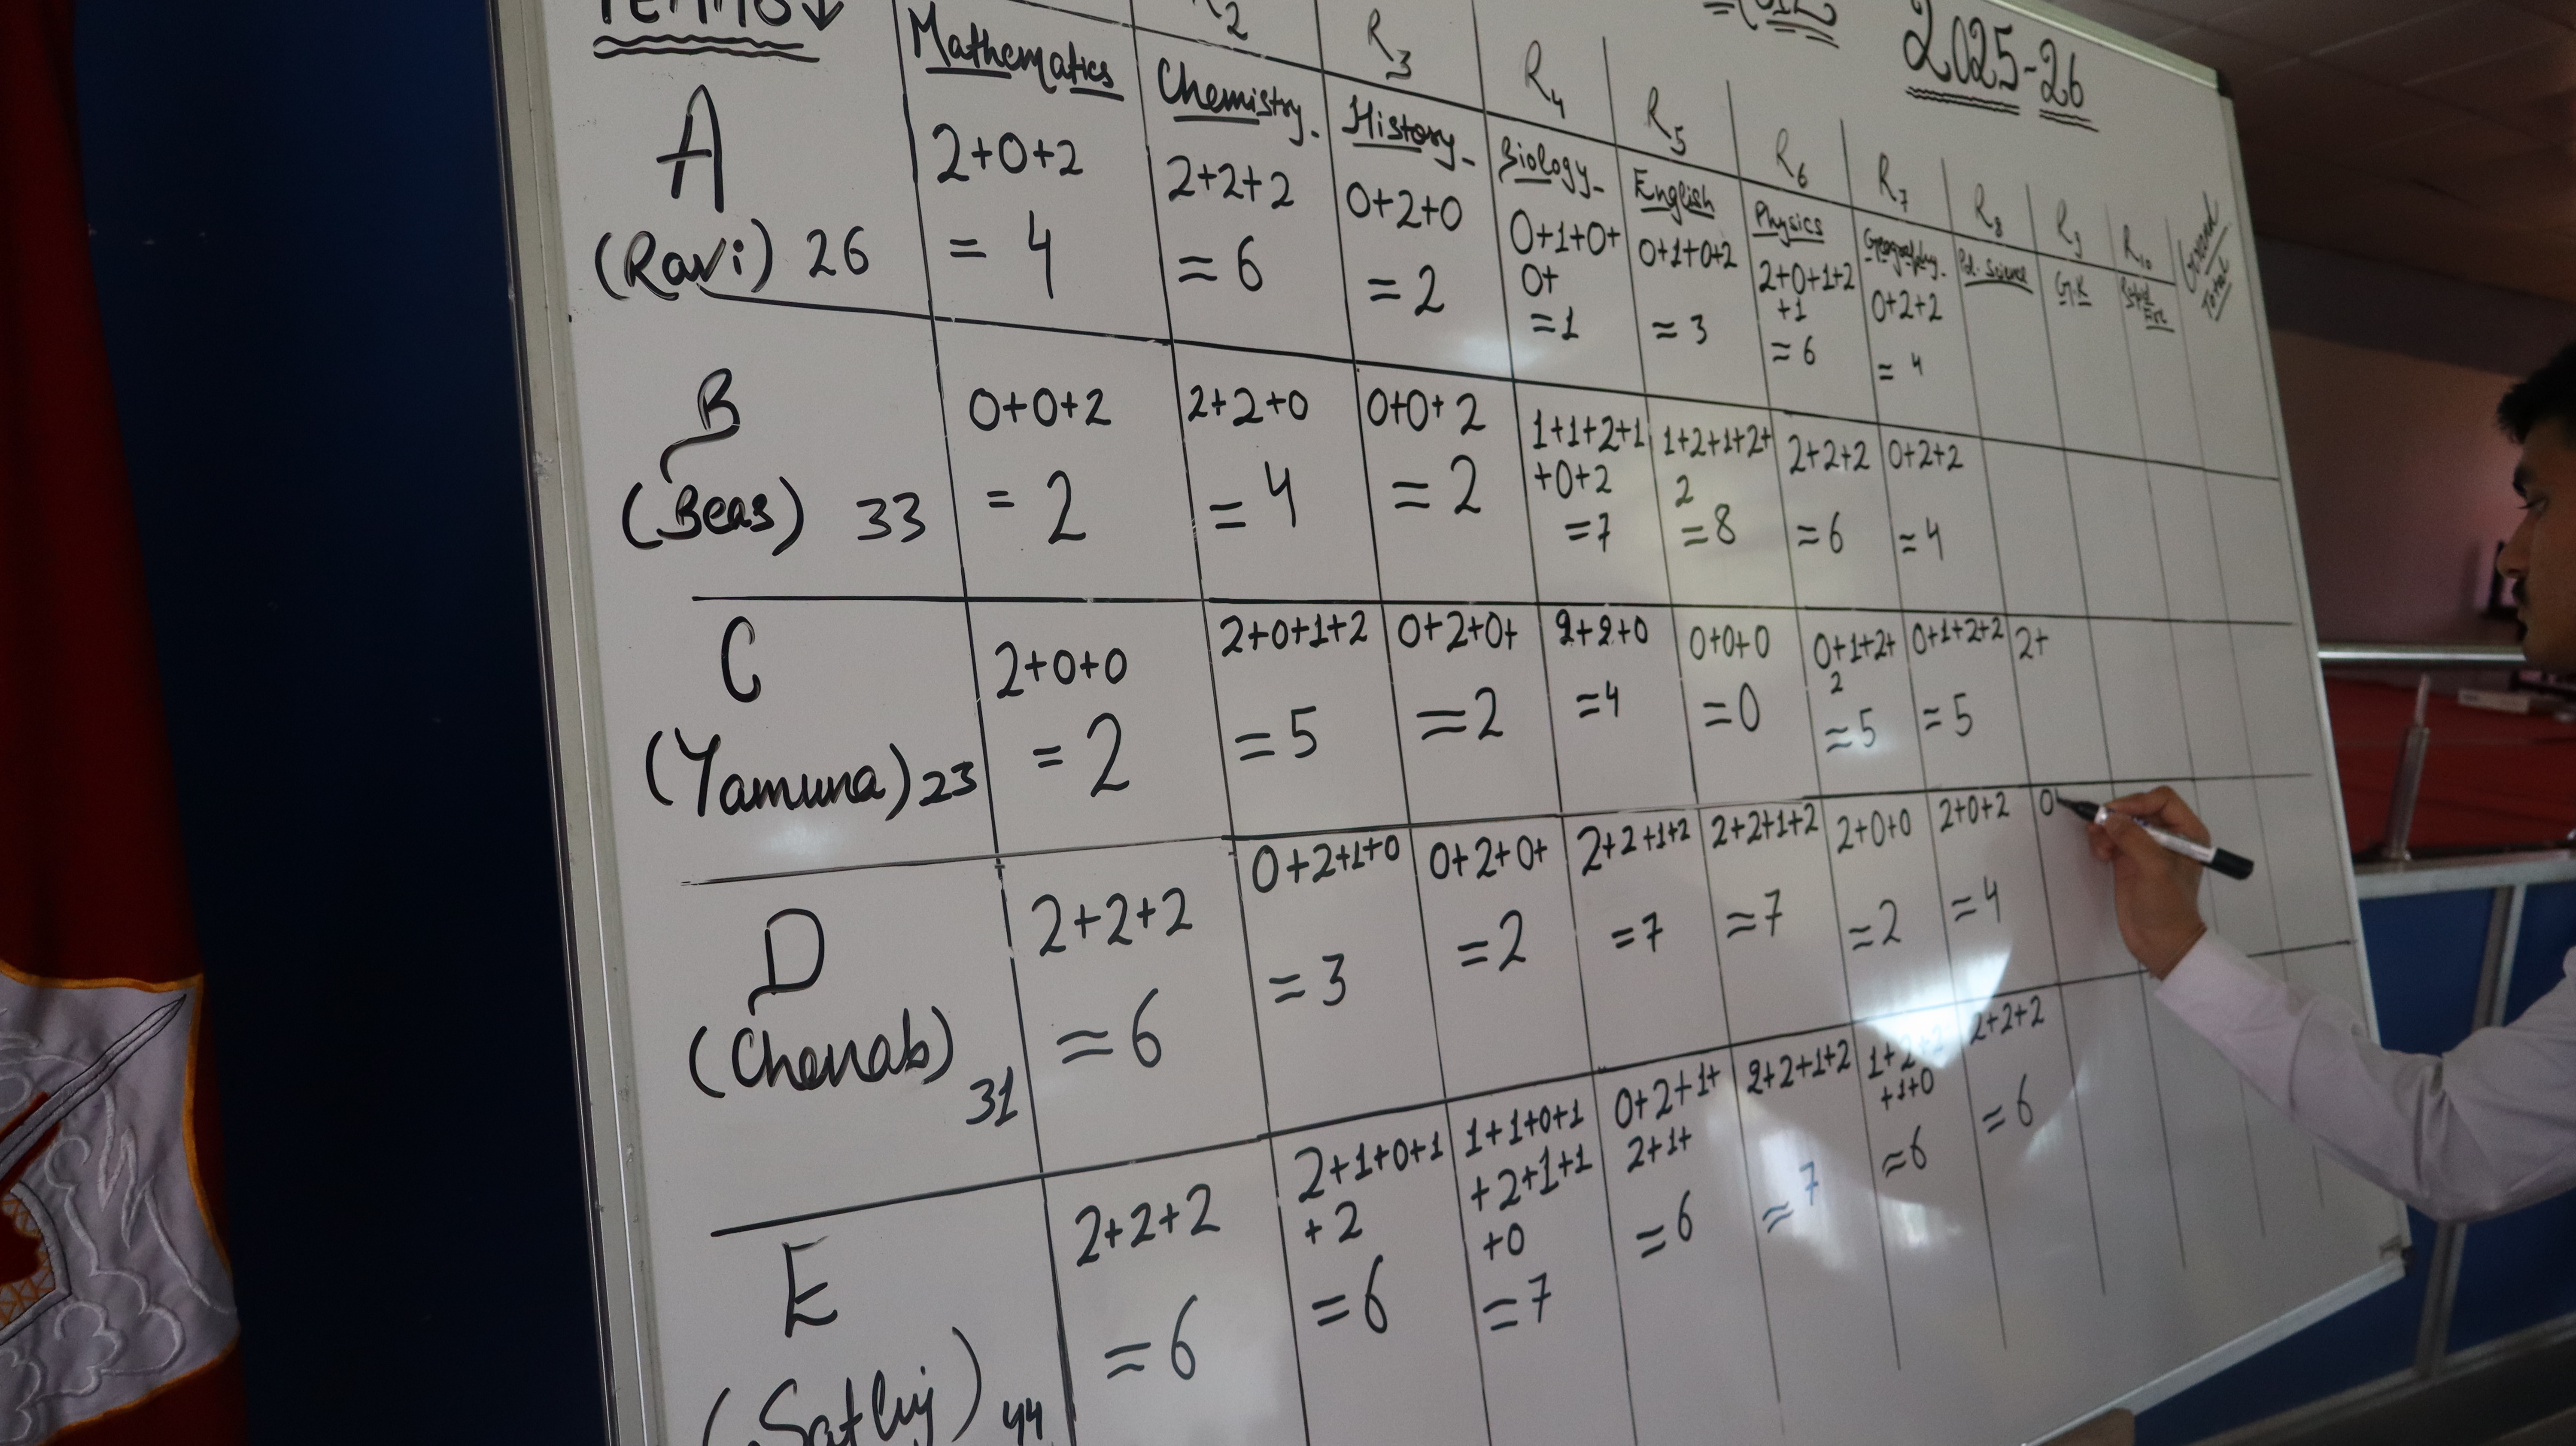 2025-26
R2 R3 R4 R5 R6 R7 R8 R9 R10 Grand Total
Mathematics Chemistry. History- Biology- English Physics Geography. Pol. Science G.K
A
(Ravi) 26
2+0+2
= 4
2+2+2
= 6
0+2+0
= 2
0+1+0+
0+
=1
0+1+0+2
= 3
2+0+1+2
+1
= 6
0+2+2
= 4
B
(Beas) 33
0+0+2
= 2
2+2+0
= 4
0+0+2
= 2
1+1+2+1
+0+2
=7
1+2+1+2+
2
=8
2+2+2
=6
0+2+2
=4
C
(Yamuna) 23
2+0+0
= 2
2+0+1+2
= 5
0+2+0+
=2
2+2+0
=4
0+0+0
=0
0+1+2+
2
=5
0+1+2+2
=5
2+
D
(Chenab)
31
2+2+2
=6
0+2+1+0
= 3
0+2+0+
=2
2+2+1+2
=7
2+2+1+2
=7
2+0+0
=2
2+0+2
=4
0
E
(Satluj) 44
2+2+2
=6
2+1+0+1
+2
=6
1+1+0+1
+2+1+1
+0
=7
0+2+1+
2+1+
=6
2+2+1+2
=7
1+2+2
+1+0
=6
2+2+2
=6